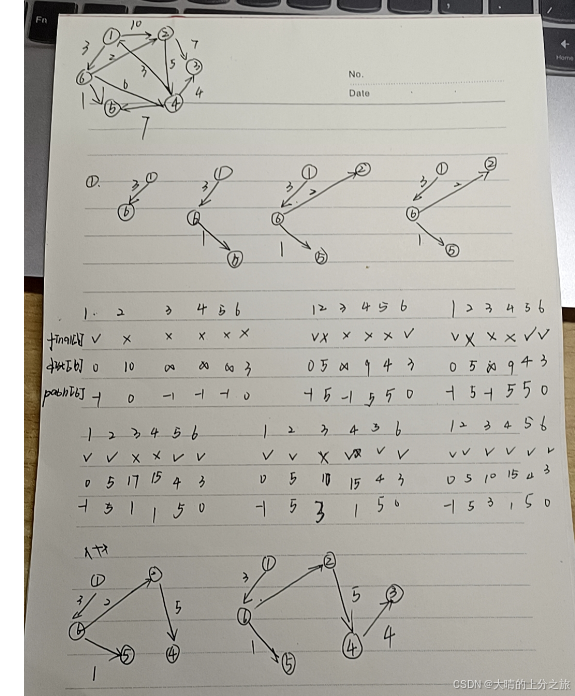 Fn
Home
No.
Date
① 10 ② 7
3 2 3 5 ③
⑥ 6 4
1 ⑤ ④
7
①. ① ① ① ② ① ②
3 3 3 2 3 2
⑥ ⑥ ⑥ ⑥
1 ⑤ 1 ⑤ 1 ⑤
1. 2 3 4 5 6 1 2 3 4 5 6 1 2 3 4 5 6
final[6] ✓ × × × × × ✓ × × × × ✓ ✓ × × × ✓ ✓
dist[6] 0 10 ∞ ∞ ∞ 3 0 5 ∞ 9 4 3 0 5 ∞ 9 4 3
path[6] -1 0 -1 -1 -1 0 -1 5 -1 5 5 0 -1 5 -1 5 5 0
1 2 3 4 5 6 1 2 3 4 5 6 1 2 3 4 5 6
✓ ✓ × × ✓ ✓ ✓ ✓ × ✓ ✓ ✓ ✓ ✓ ✓ ✓ ✓ ✓
0 5 17 15 4 3 0 5 10 15 4 3 0 5 10 15 4 3
-1 5 1 1 5 0 -1 5 3 1 5 0 -1 5 3 1 5 0
① ① ②
3 2 5 3 5 ③
⑥ ⑥ 4
1 ⑤ ④ 1 ⑤ ④
CSDN @大晴的上分之旅